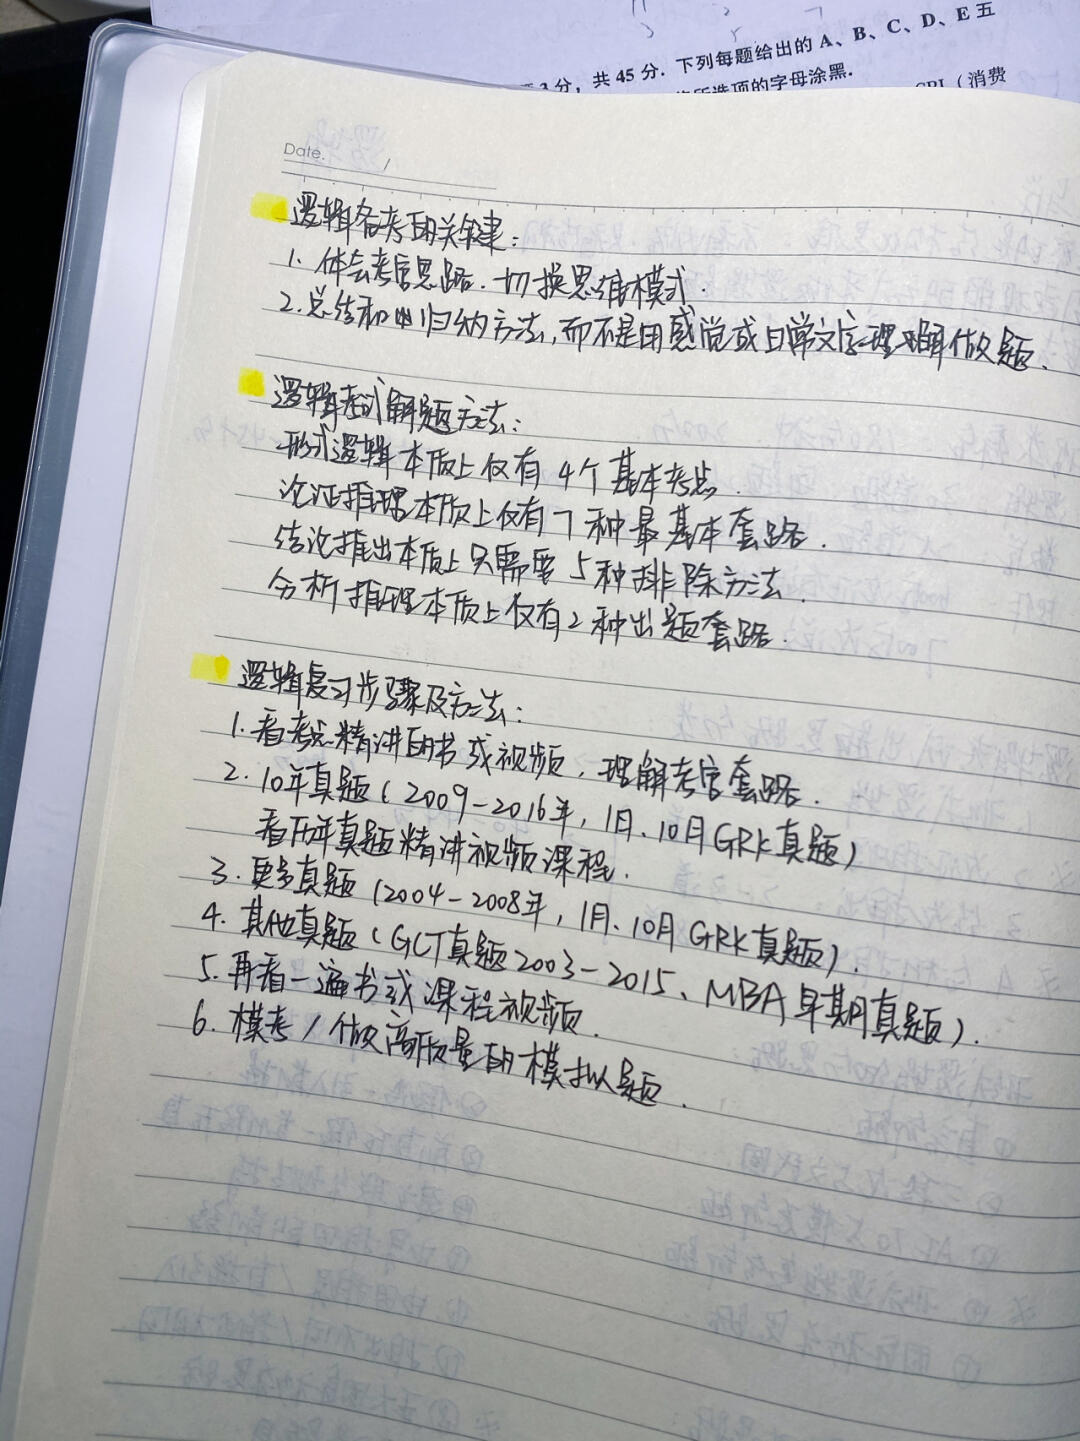 3分，共45分．下列每题给出的A、B、C、D、E五
所选项的字母涂黑．
CPI（消费
Date. /
逻辑备考的关键：
1. 体会考官思路．切换思维模式．
2. 总结和归纳方法，而不是用感觉或日常文字理解做题．
逻辑考试解题方法：
形式逻辑本质上仅有4个基本考点．
论证推理本质上仅有7种最基本套路．
结论推出本质上只需要5种排除方法．
分析推理本质上仅有2种出题套路．
逻辑复习步骤及方法：
1. 看考点精讲的书或视频，理解考官套路．
2. 10年真题（2009-2016年，1月、10月GRK真题）
看历年真题精讲视频课程．
3. 更多真题（2004-2008年，1月、10月GRK真题）．
4. 其他真题（GCT真题2003-2015、MBA早期真题）．
5. 再看一遍书或课程视频．
6. 模考/做高质量的模拟题．